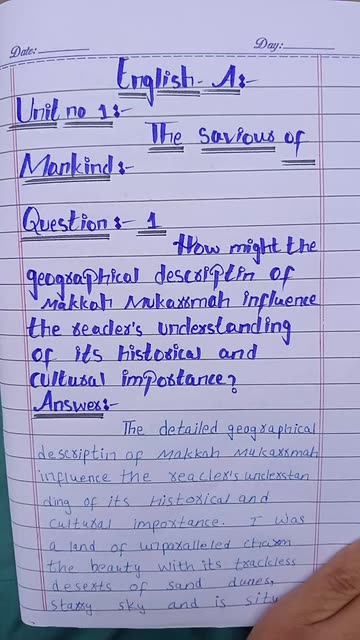 Date:
Day:
English - A:-
Unit no 1:-
The saviour of
Mankind:-
Question:- 1
How might the
geographical descriptin of
Makkah Mukarrmah influence
the reader's understanding
of its historical and
cultural importance?
Answer:-
The detailed geographical
descriptin of Makkah Mukarrmah
influence the reader's understan
ding of its Historical and
cultural importance. I was
a land of unparalleled charm
the beauty with its trackless
deserts of sand dunes,
starry sky and is situ